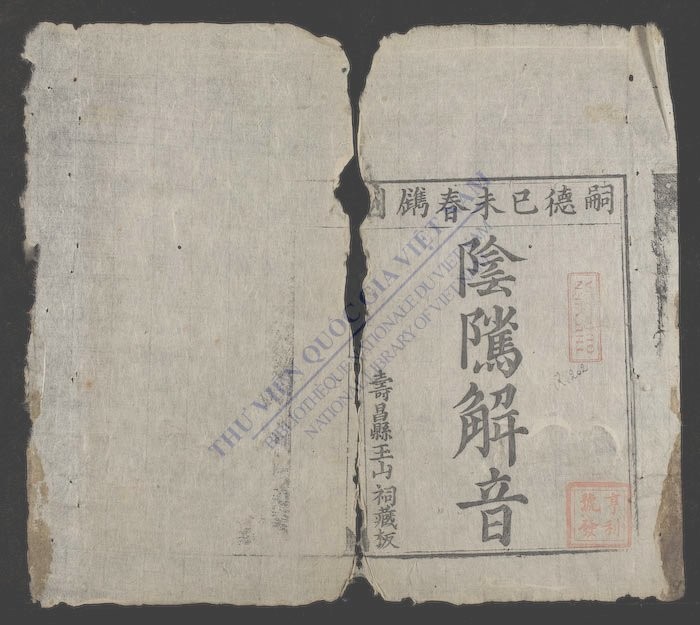 嗣德己未春鐫
陰隲解音
壽昌縣玉山祠藏板
亨利
號發
R.262
THƯ VIỆN QUỐC GIA VIỆT NAM
BIBLIOTHÈQUE NATIONALE DU VIETNAM
NATIONAL LIBRARY OF VIETNAM